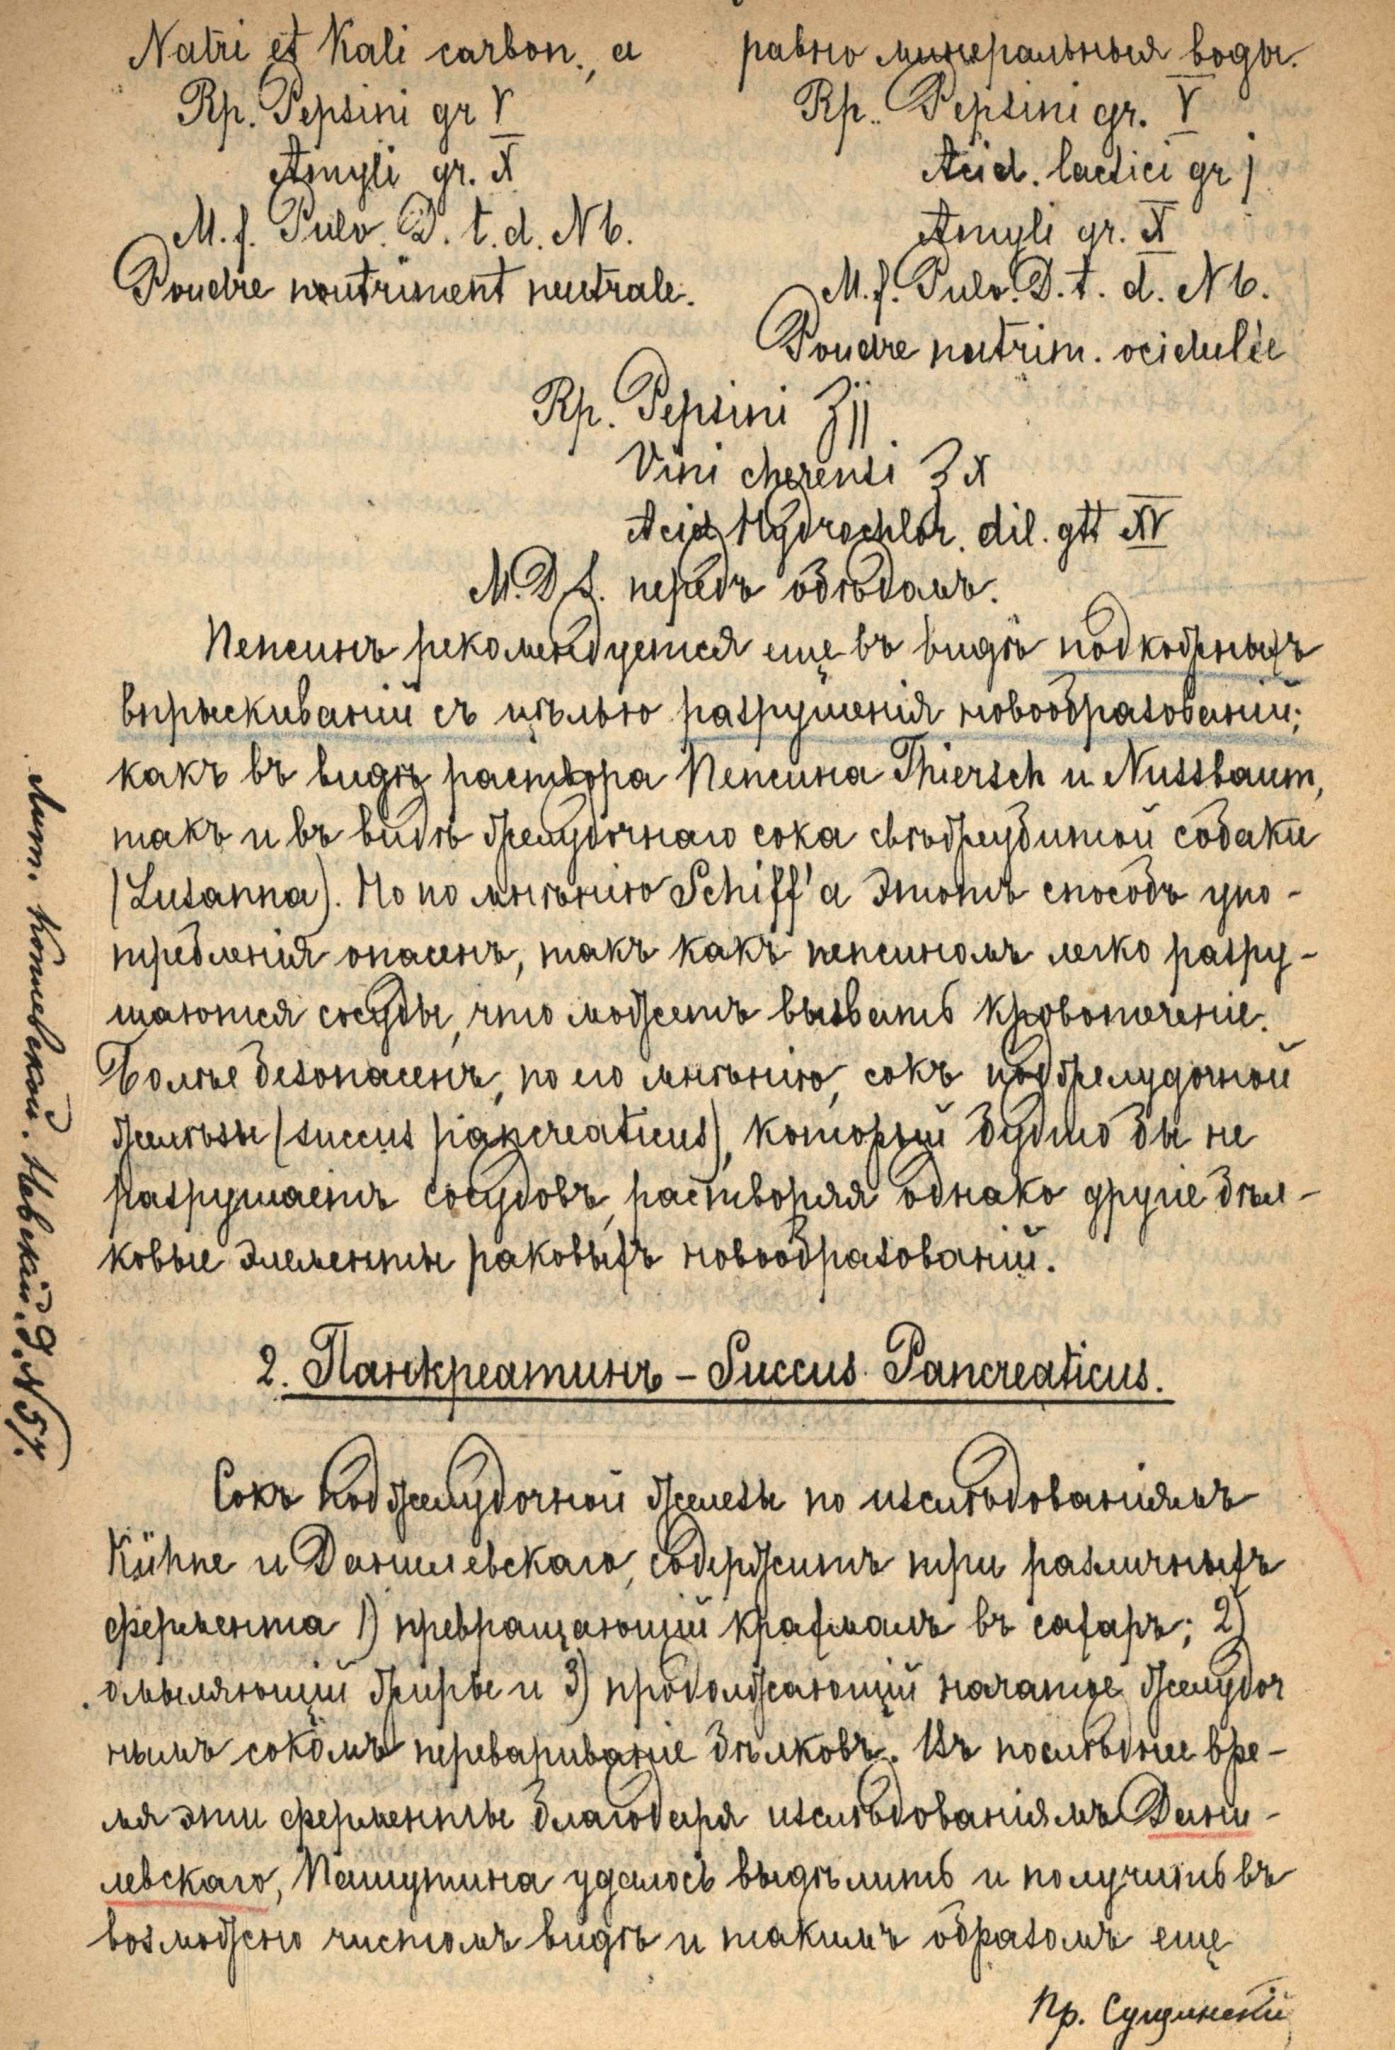 Natri et Kali carbon., а равно минеральныя воды.
Rp. Pepsini gr V
Amyli gr. X
M. f. Pulv. D. t. d. N 6.
Poudre noutriment neutrale.
Rp. Pepsini gr. V
Acid. lactici gr j
Amyli gr. X
M. f. Pulv. D. t. d. N 6.
Poudre nutrim. acidulée
Rp. Pepsini ʒjj
Vini cherensi ʒ X
Acid Hydrochlor. dil. gtt XV
M. D. S. передъ обѣдомъ.
Пепсинъ рекомендуется еще въ видѣ подкожныхъ
впрыскиваній съ цѣлью разрушенія новообразованій;
какъ въ видѣ раствора Пепсина Thiersch и Nussbaum,
такъ и въ видѣ желудочнаго сока собаки
(Lusanna). Но по мнѣнію Schiff'а этотъ способъ упо-
требленія опасенъ, такъ какъ пепсиномъ легко разру-
шаются сосуды, что можетъ вызвать кровотеченіе.
Болѣе безопасенъ, по его мнѣнію, сокъ поджелудочной
желѣзы (succus pancreaticus), который будто бы не
разрушаетъ сосудовъ, растворяя однако другіе бѣл-
ковые элементы раковыхъ новообразованій.
2. Панкреатинъ – Succus Pancreaticus.
Сокъ поджелудочной железы по изслѣдованіямъ
Kühne и Данилевскаго, содержитъ три различныхъ
фермента 1) превращающій крахмалъ въ сахаръ; 2)
омыляющій жиры и 3) продолжающій начатое желудоч
нымъ сокомъ перевариваніе бѣлковъ. Въ послѣднее вре-
мя эти ферменты благодаря изслѣдованіямъ Дани-
левскаго, Пашутина удалось выдѣлить и получить въ
возможно чистомъ видѣ и такимъ образомъ еще
Пр. Сущинскій
Лит. Невскій. д. № 57.